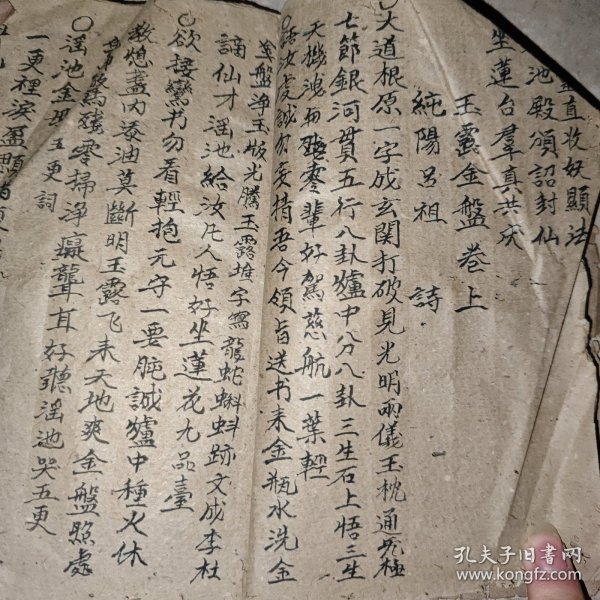 直收妖顯法
池殿頒詔封仙
坐蓮台羣真共庆
玉露金盤卷上
純陽吕祖 詩
大道根原一字成玄関打破見光明兩儀玉枕通極
七節銀河貫五行八卦爐中分八卦三生石上悟三生
天機洩零輩好駕慈航一葉輕
汝虔誠妄猜吾今領旨送书来金瓶水洗金
金盤淨玉版光騰玉露堆字寫龍蛇蝌蚪跡文成李杜
謫仙才滛池給汝凡人悟好坐蓮花九品臺
○欲接鸞书勿看輕抱元守一要眈誠爐中種火休
教熄盞内添油莫斷明玉露飞来天地爽金盤照處
零掃淨聾耳好聽滛池哭五更
○滛池金母五更詞
一更裡淚盈
孔夫子旧書网
www.kongfz.com